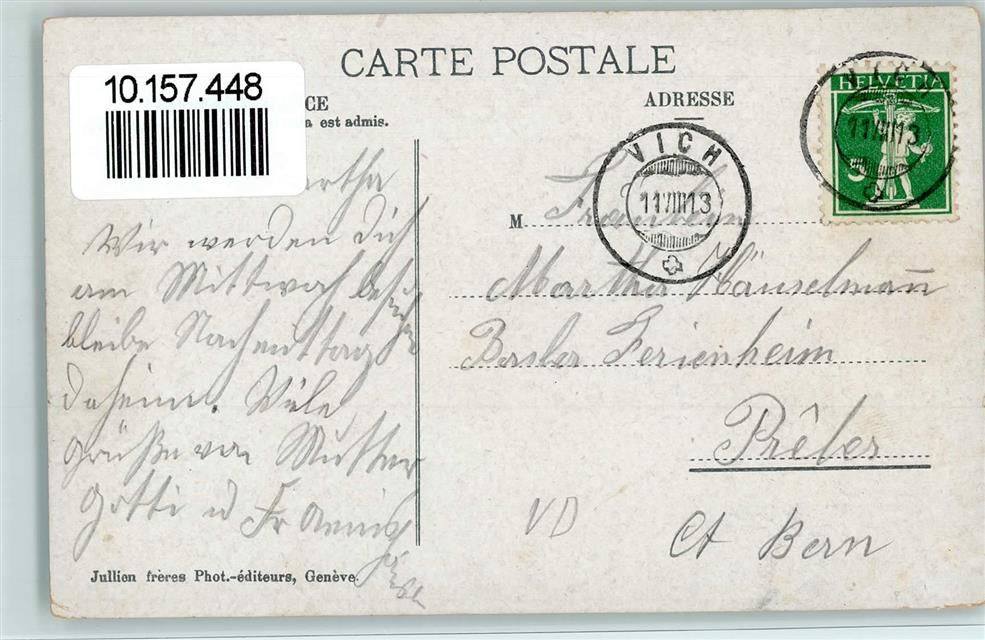 CARTE POSTALE
10.157.448
CE
a est admis.
ADRESSE
HELVETIA
5
VICH
11 VIII 13
VICH
11 VIII 13
Martha
Wir werden Dich
am Mittwoch besuchen
bleibe Nachmittag
daheim. Viele
Grüße von Mutter
Gotti u
M Fräulein
Martha Hänselmañ
Basler Ferienheim
Prêles
Ct Bern
VD
Jullien frères Phot.-éditeurs, Genève.